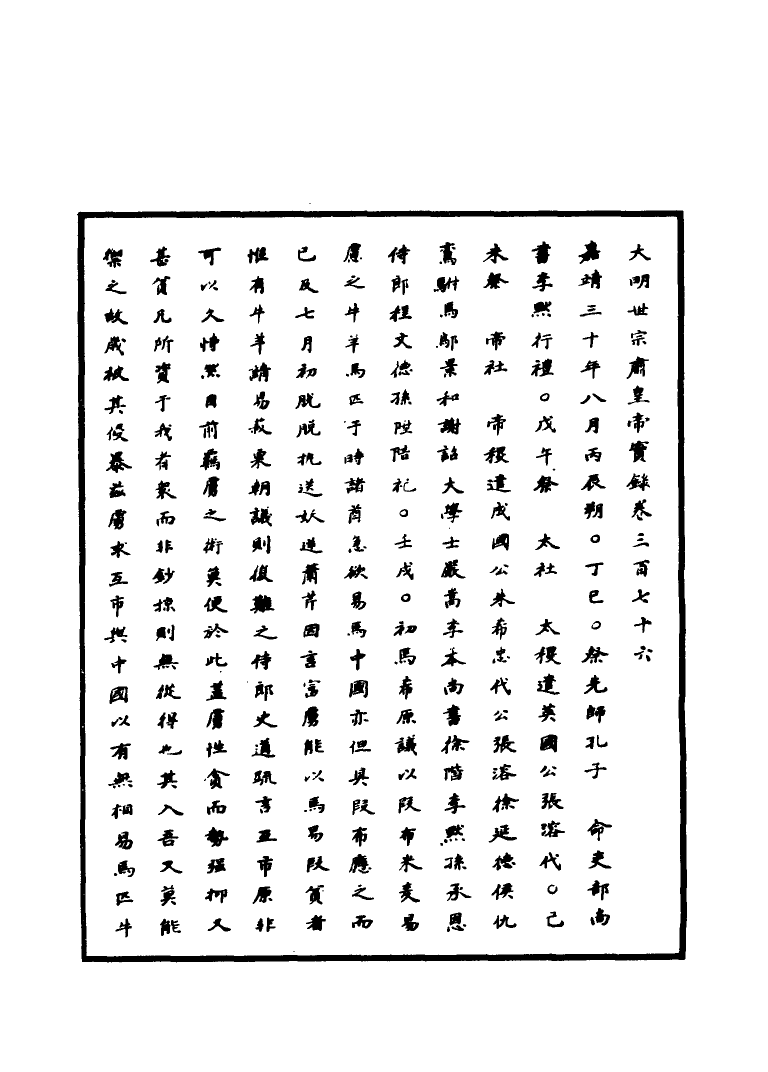 大明世宗肅皇帝實錄卷三百七十六
嘉靖三十年八月丙辰朔○丁巳○祭先師孔子　命吏部尚
書李熙行禮○戊午祭　太社　太稷遣英國公張溶代○己
未祭　帝社　帝稷遣成國公朱希忠代公張溶徐延德侯仇
鸞駙馬鄔景和謝詔大學士嚴嵩李本尚書徐階李熙孫承恩
侍郎程文德孫陞陪祀○壬戌○初馬希原議以段布米麦易
虜之牛羊馬匹于時諸酋急欲易馬中國亦但具段布應之而
已及七月初脱脱执送妖逆蕭芹因言富虜能以馬易段貧者
惟有牛羊請易菽粟朝議則復難之侍郎史道疏言互市原非
可以久恃然目前羈虜之術莫便於此蓋虜性貪而勢强抑又
甚貧凡所資于我者衆而非鈔掠則無從得也其入吾又莫能
禦之故咸被其侵暴茲虜求互市與中國以有無相易馬匹牛